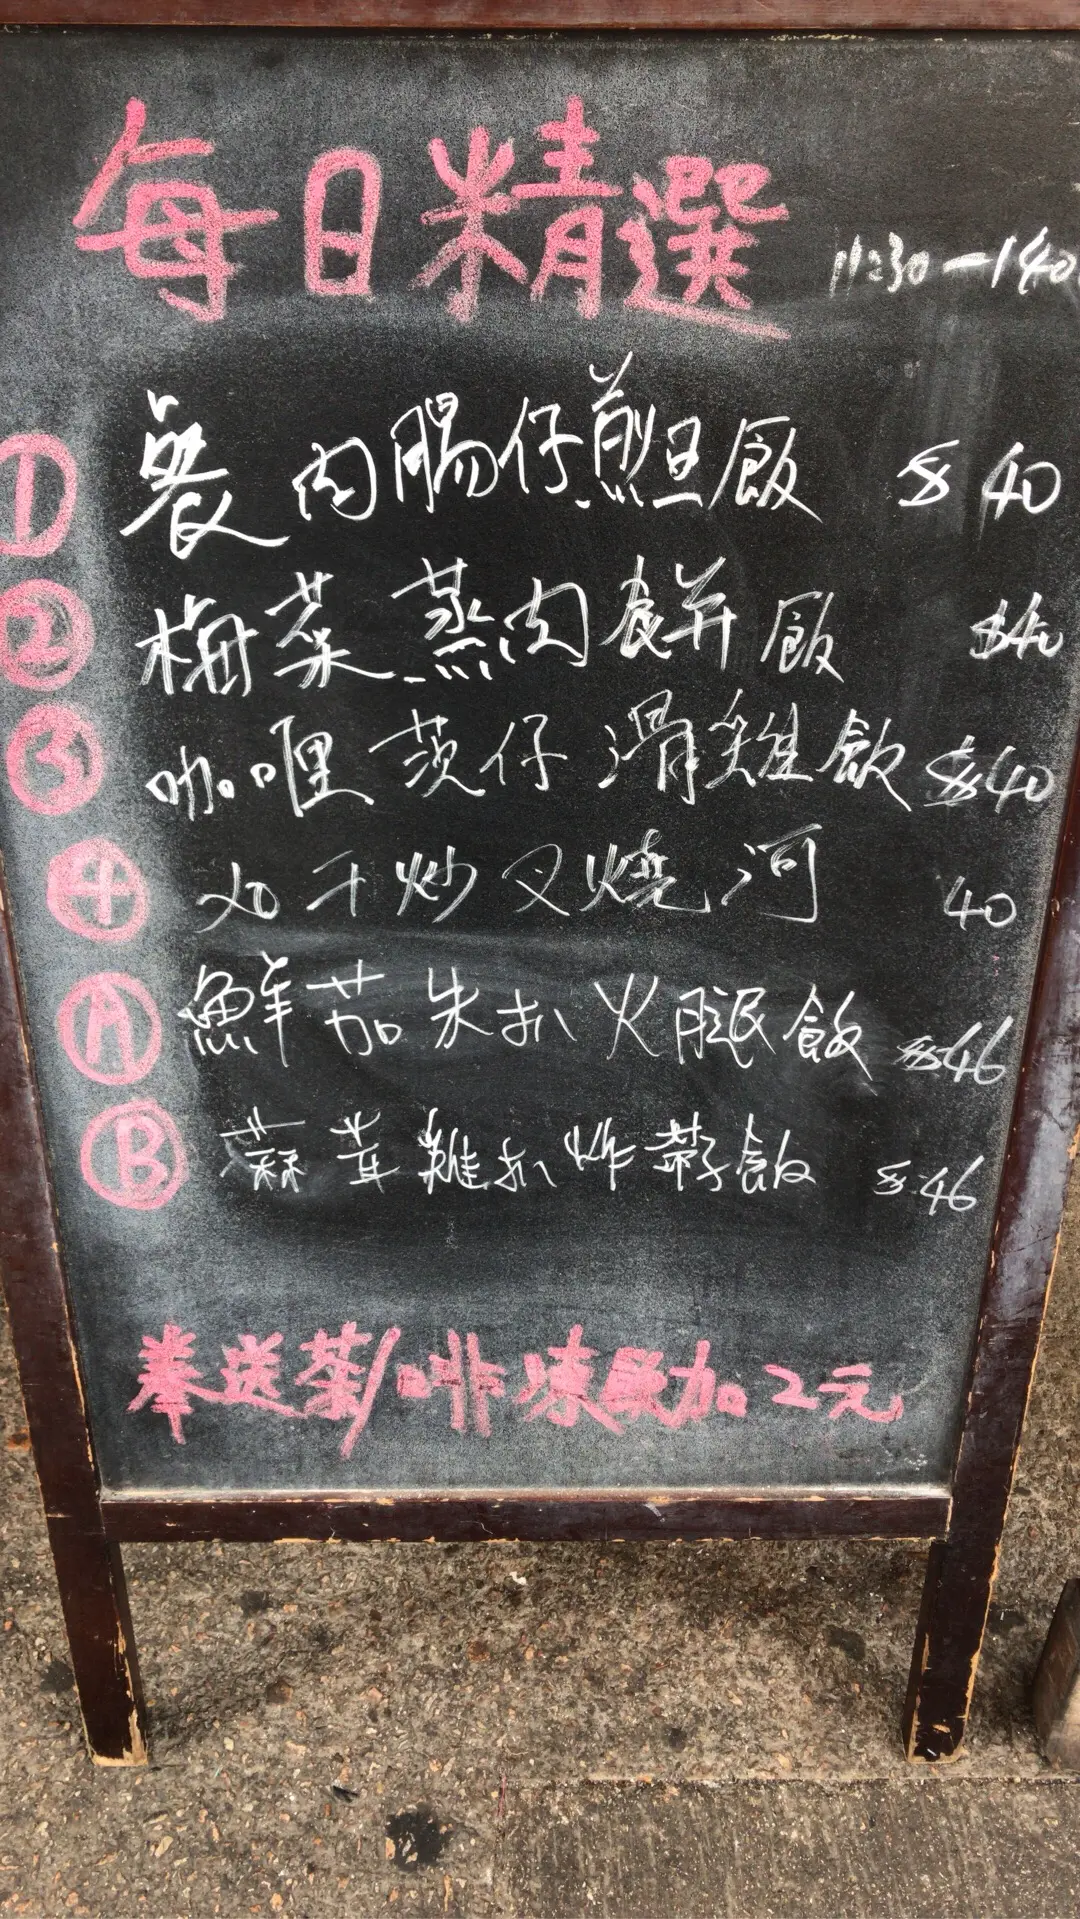 每日精選 11:30-140
① 餐肉腸仔煎旦飯 $40
② 梅菜蒸肉餅飯 $40
③ 咖喱茨仔滑雞飯 $40
④ 干炒叉燒河 40
Ⓐ 鮮茄朱扒火腿飯 $46
Ⓑ 蒜茸雞扒炸帶子飯 $46
送茶/啡 凍飲加2元